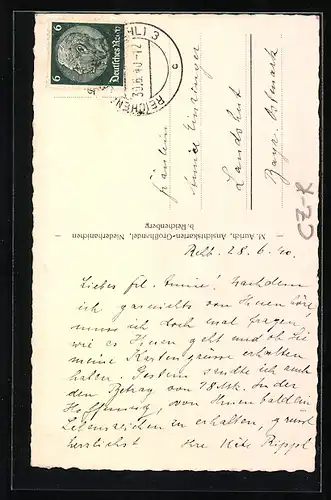 6 Deutsches Reich 6
REICHEN
30.6.40.-12
c
Fräulein
Landshut
Bayr. Ostmark
M. Aurich, Ansichtskarten-Großhandel, Niederhanichen
b. Reichenberg
CZ-R
28.6.40.
Liebes Frl. Annie! Nachdem
ich garnichts von Ihnen höre
muss ich doch mal fragen
wie es Ihnen geht und ob Sie
meine Kartengrüsse erhalten
haben. Gestern sandte ich auch
den Betrag von 18 Mk. In der
Hoffnung, von Ihnen bald ein
Lebenszeichen zu erhalten, grüsst
herzlichst Ihre Käte Rippel